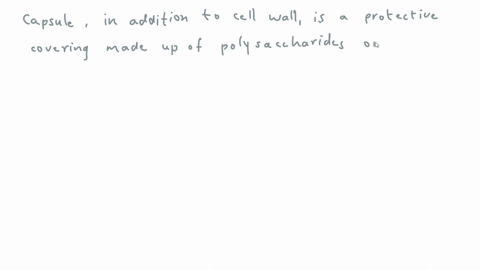 Capsule, in addition to cell wall, is a protective
covering made up of polysaccharides